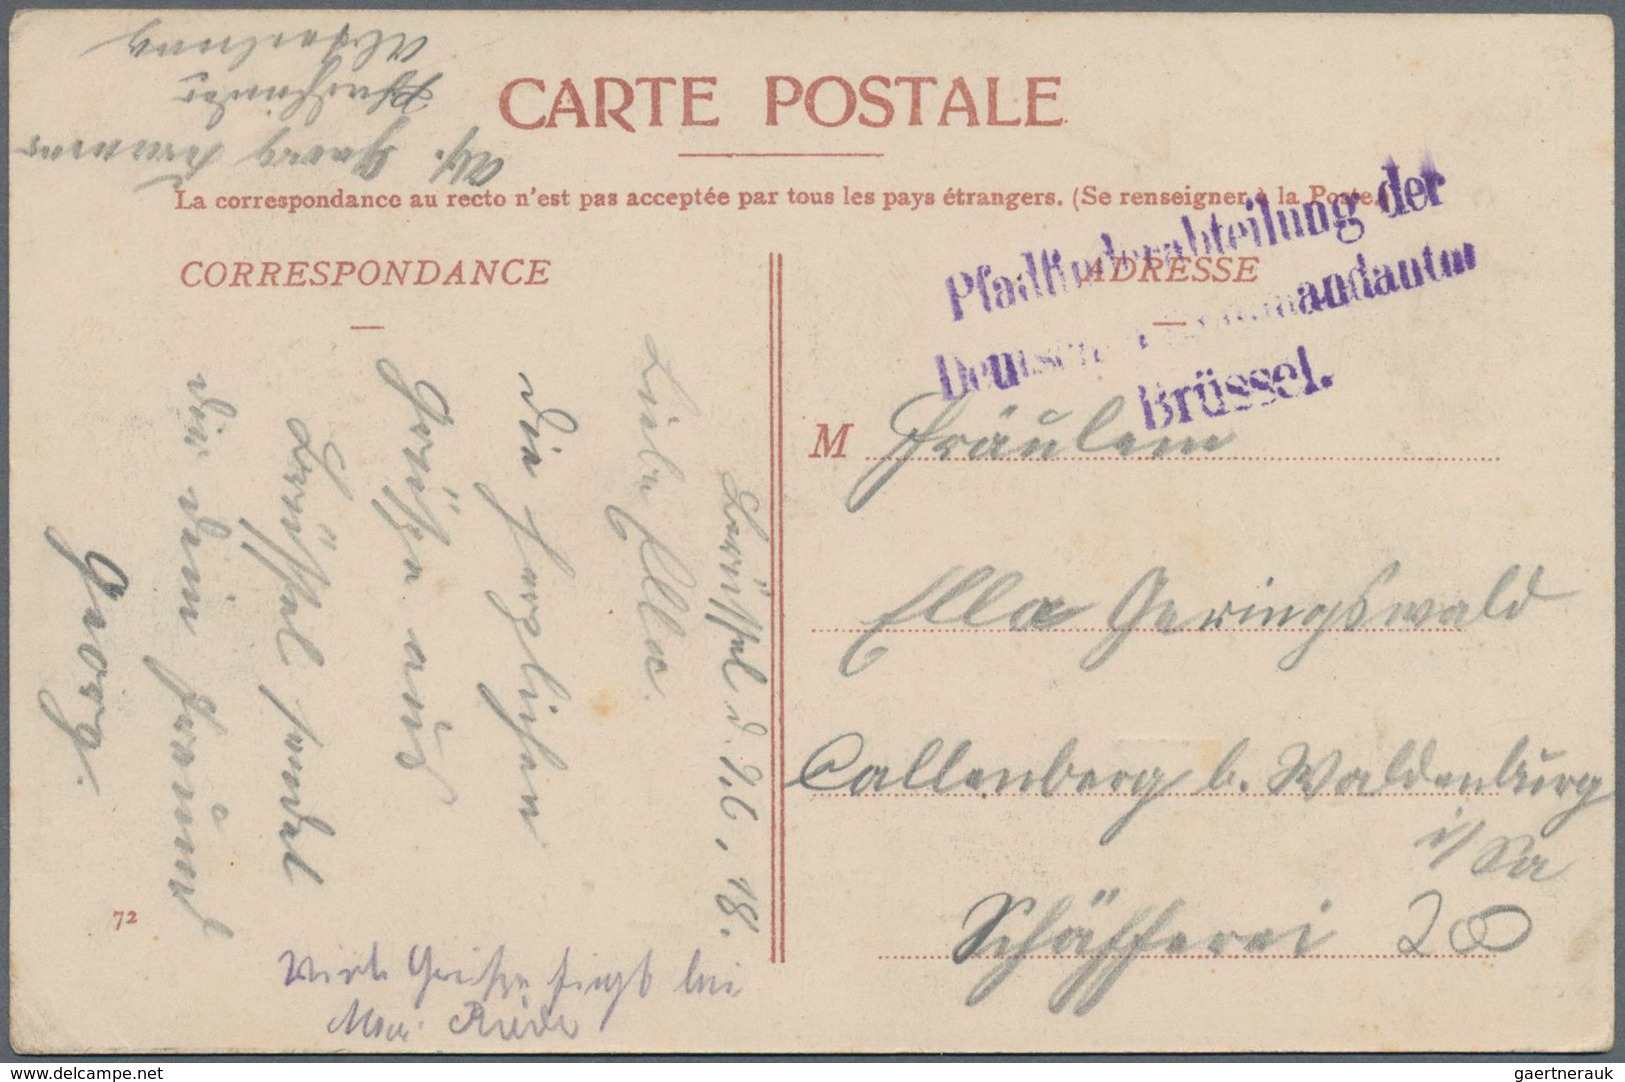 Abteilung
Pfadfinder
Abs. Georg
CARTE POSTALE
La correspondance au recto n'est pas acceptée par tous les pays étrangers. (Se renseigner à la Poste.)
Pfadfinderabteilung der
Deutschen Kommandantur
Brüssel.
CORRESPONDANCE
ADRESSE
Brüssel d. 26. 18.
Liebe Ella.
Die herzlichen
Grüße aus
Brüssel sendet
dir dein Freund
Georg.
72
M Fräulein
Ella Geringswald
Callenberg b. Waldenburg
i/Sa
Schäfferei 20
Viele Grüße
delcampe.net
gaertnerauk